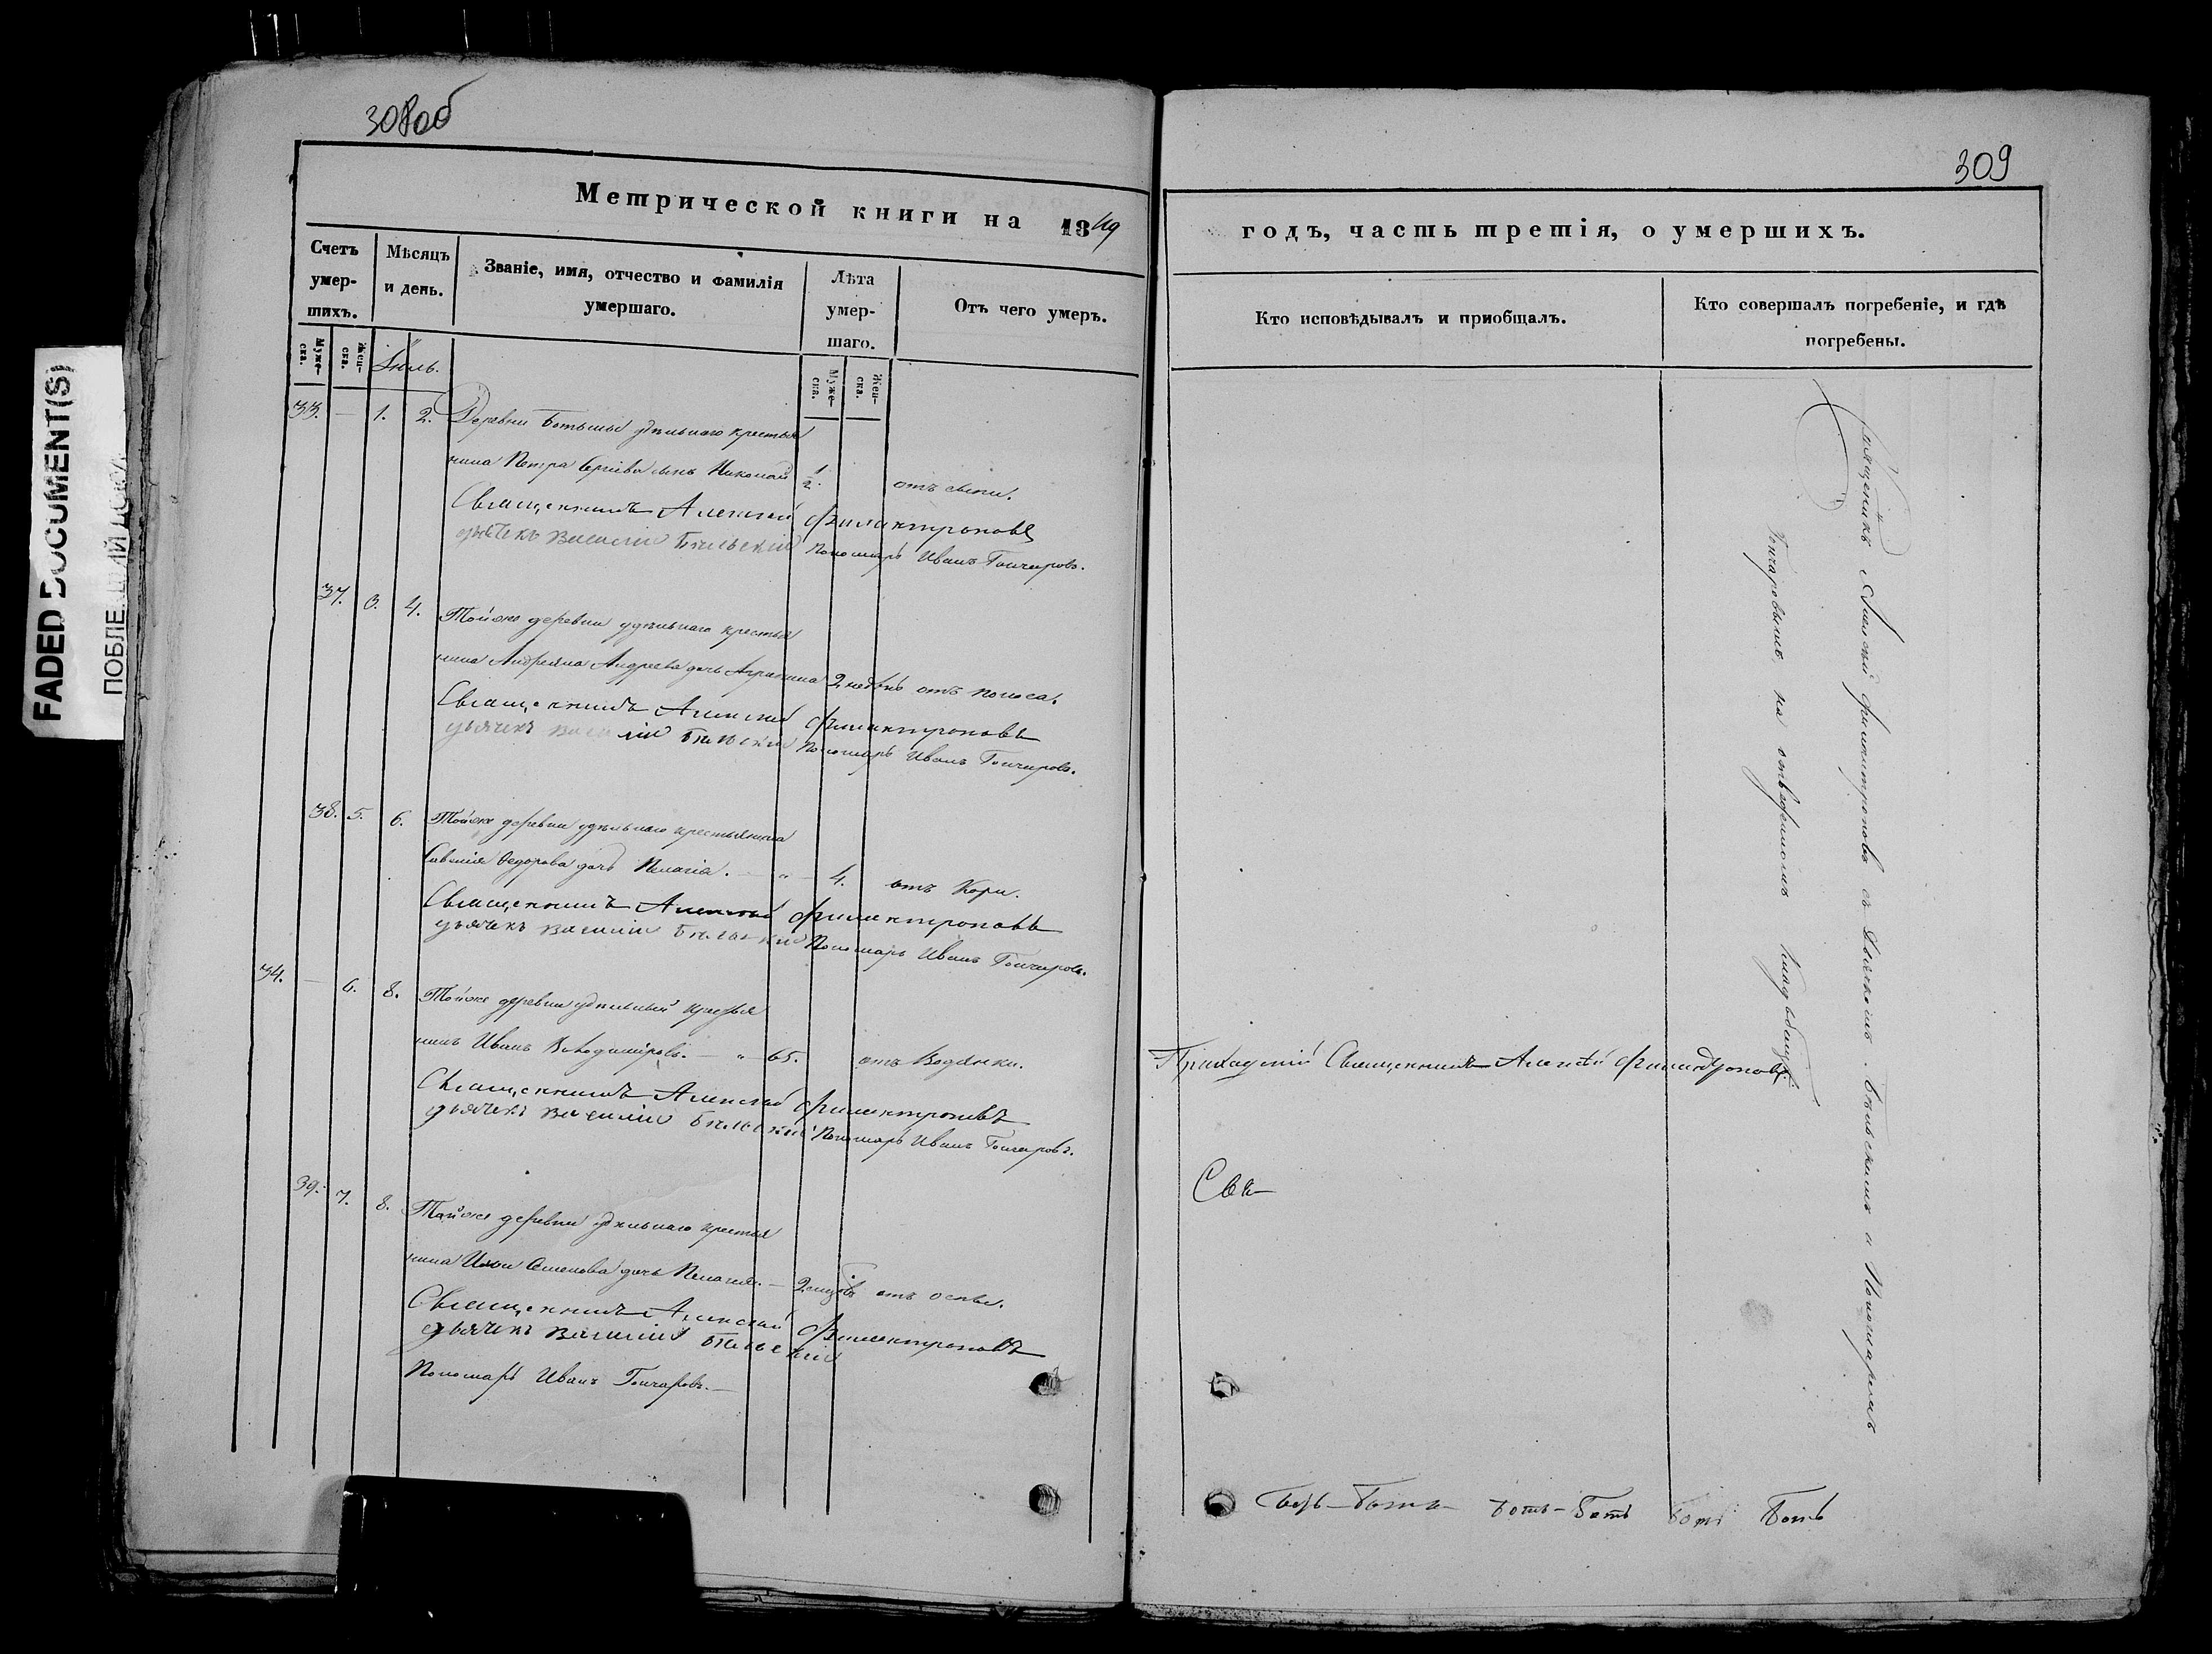 308об
Метрической книги на 1849
Счетъ умер-шихъ.
Мѣсяцъ и день.
Званіе, имя, отчество и фамилія умершаго.
Лѣта умер-шаго.
Отъ чего умеръ.
Муже-ска.
Жен-ска.
Муже-ска.
Жен-ска.
33. — 1. 2. Деревни удѣльнаго крестья
нина Петра Сергіева сынъ Николай 1/2.
Священникъ Алексѣй Филантроповъ
дьячекъ Василій Бѣльскій Пономарь Иванъ Гончаровъ.
37. 3. 4. Тойже деревни удѣльнаго крестья
нина Андреева дочь 2 недѣль отъ поноса.
Священникъ Алексѣй Филантроповъ
дьячекъ Василій Бѣльскій Пономарь Иванъ Гончаровъ.
38. 5. 6. Тойже деревни удѣльнаго крестьянина
Савелія Ѳедорова дочь Пелагія. — „ — 4. отъ Кори.
Священникъ Алексѣй Филантроповъ
дьячекъ Василій Бѣльскій Пономарь Иванъ Гончаровъ.
34. — 6. 8. Тойже деревни удѣльный крестья
нинъ Иванъ Володиміровъ. — „ — 65. отъ Водянки.
Священникъ Алексѣй Филантроповъ
дьячекъ Василій Бѣльскій Пономарь Иванъ Гончаровъ.
39. 7. 8. Тойже деревни удѣльнаго крестья
нина Семенова дочь Пелагія. — 2 отъ оспы.
Священникъ Алексѣй Филантроповъ
дьячекъ Василій Бѣльскій
Пономарь Иванъ Гончаровъ. —
309
годъ, часть третія, о умершихъ.
Кто исповѣдывалъ и приобщалъ.
Кто совершалъ погребеніе, и гдѣ погребены.
Священникъ Алексѣй Филантроповъ съ Дьячкомъ Бѣльскимъ и Пономаремъ
Гончаровымъ на кладбищѣ.
Приходскій Священникъ Алексѣй Филантроповъ.
Свя—
FADED DOCUMENT(S)